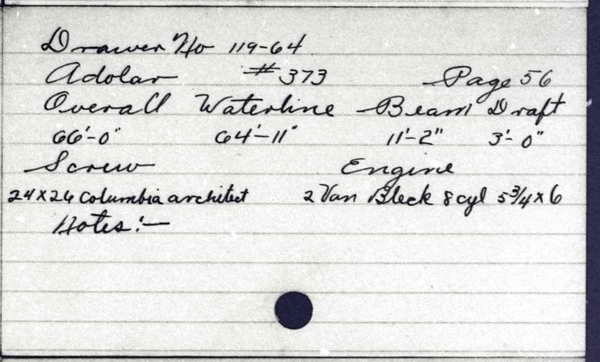 Drawer No 119-64
Adolar #373 Page 56
Overall Waterline Beam Draft
66'-0" 64'-11" 11'-2" 3'-0"
Screw Engine
24x26 Columbia architect 2 Van Bleck 8 cyl 5 3/4 x 6
Notes:-